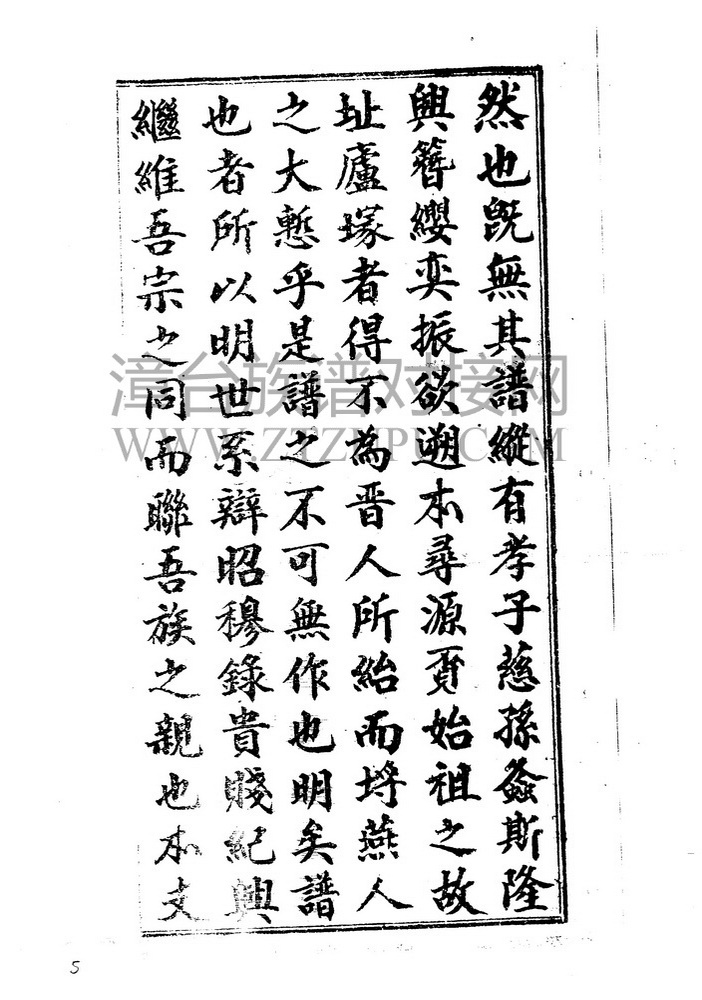 然也既無其譜縱有孝子慈孫螽斯隆
興簪纓奕振欲遡本尋源覔始祖之故
址廬塚者得不為晋人所紿而埒燕人
之大慙乎是譜之不可無作也明矣譜
也者所以明世系辯昭穆錄貴賤紀興
繼維吾宗之同而聯吾族之親也本支
漳台族谱对接网
WWW.ZTZUPU.COM
5